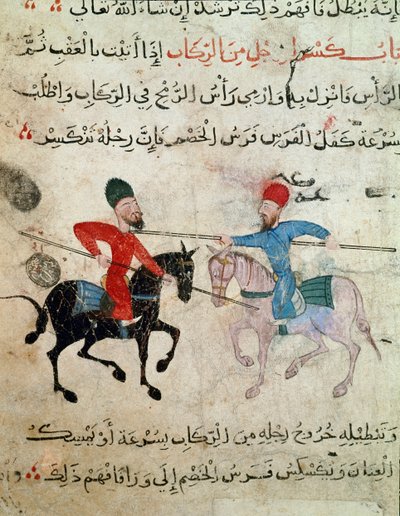 فإنه يبطل فافهم ذلك ترشد إن شاء الله تعالى
باب كسر رجل من الركاب إذا أتيت بالعقب ثم
الرأس فانزل به وارمي رأس الرمح في الركاب واطلب
بسرعة كفل الفرس فرس الخصم فإن رجله تنكسر
وتبطيله خروج رجله من الركاب بسرعة أو يمسك
العنان فرس الخصم إلى ورا فافهم ذلك